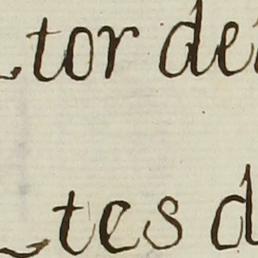 tor de
tes d